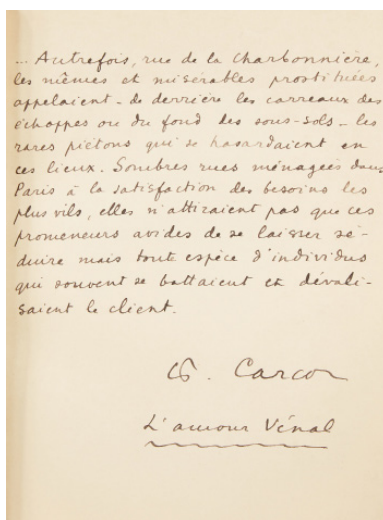 ... Autrefois, rue de la Charbonnière,
les mêmes et misérables prostituées
appelaient - de derrière les carreaux des
échoppes ou du fond des sous-sols - les
rares piétons qui se hasardaient en
ces lieux. Sombres rues ménagées dans
Paris à la satisfaction des besoins les
plus vils, elles n'attiraient pas que ces
promeneurs avides de se laisser sé-
duire mais toute espèce d'individus
qui souvent se battaient et dévali-
saient le client.
F. Carco
L'amour Vénal